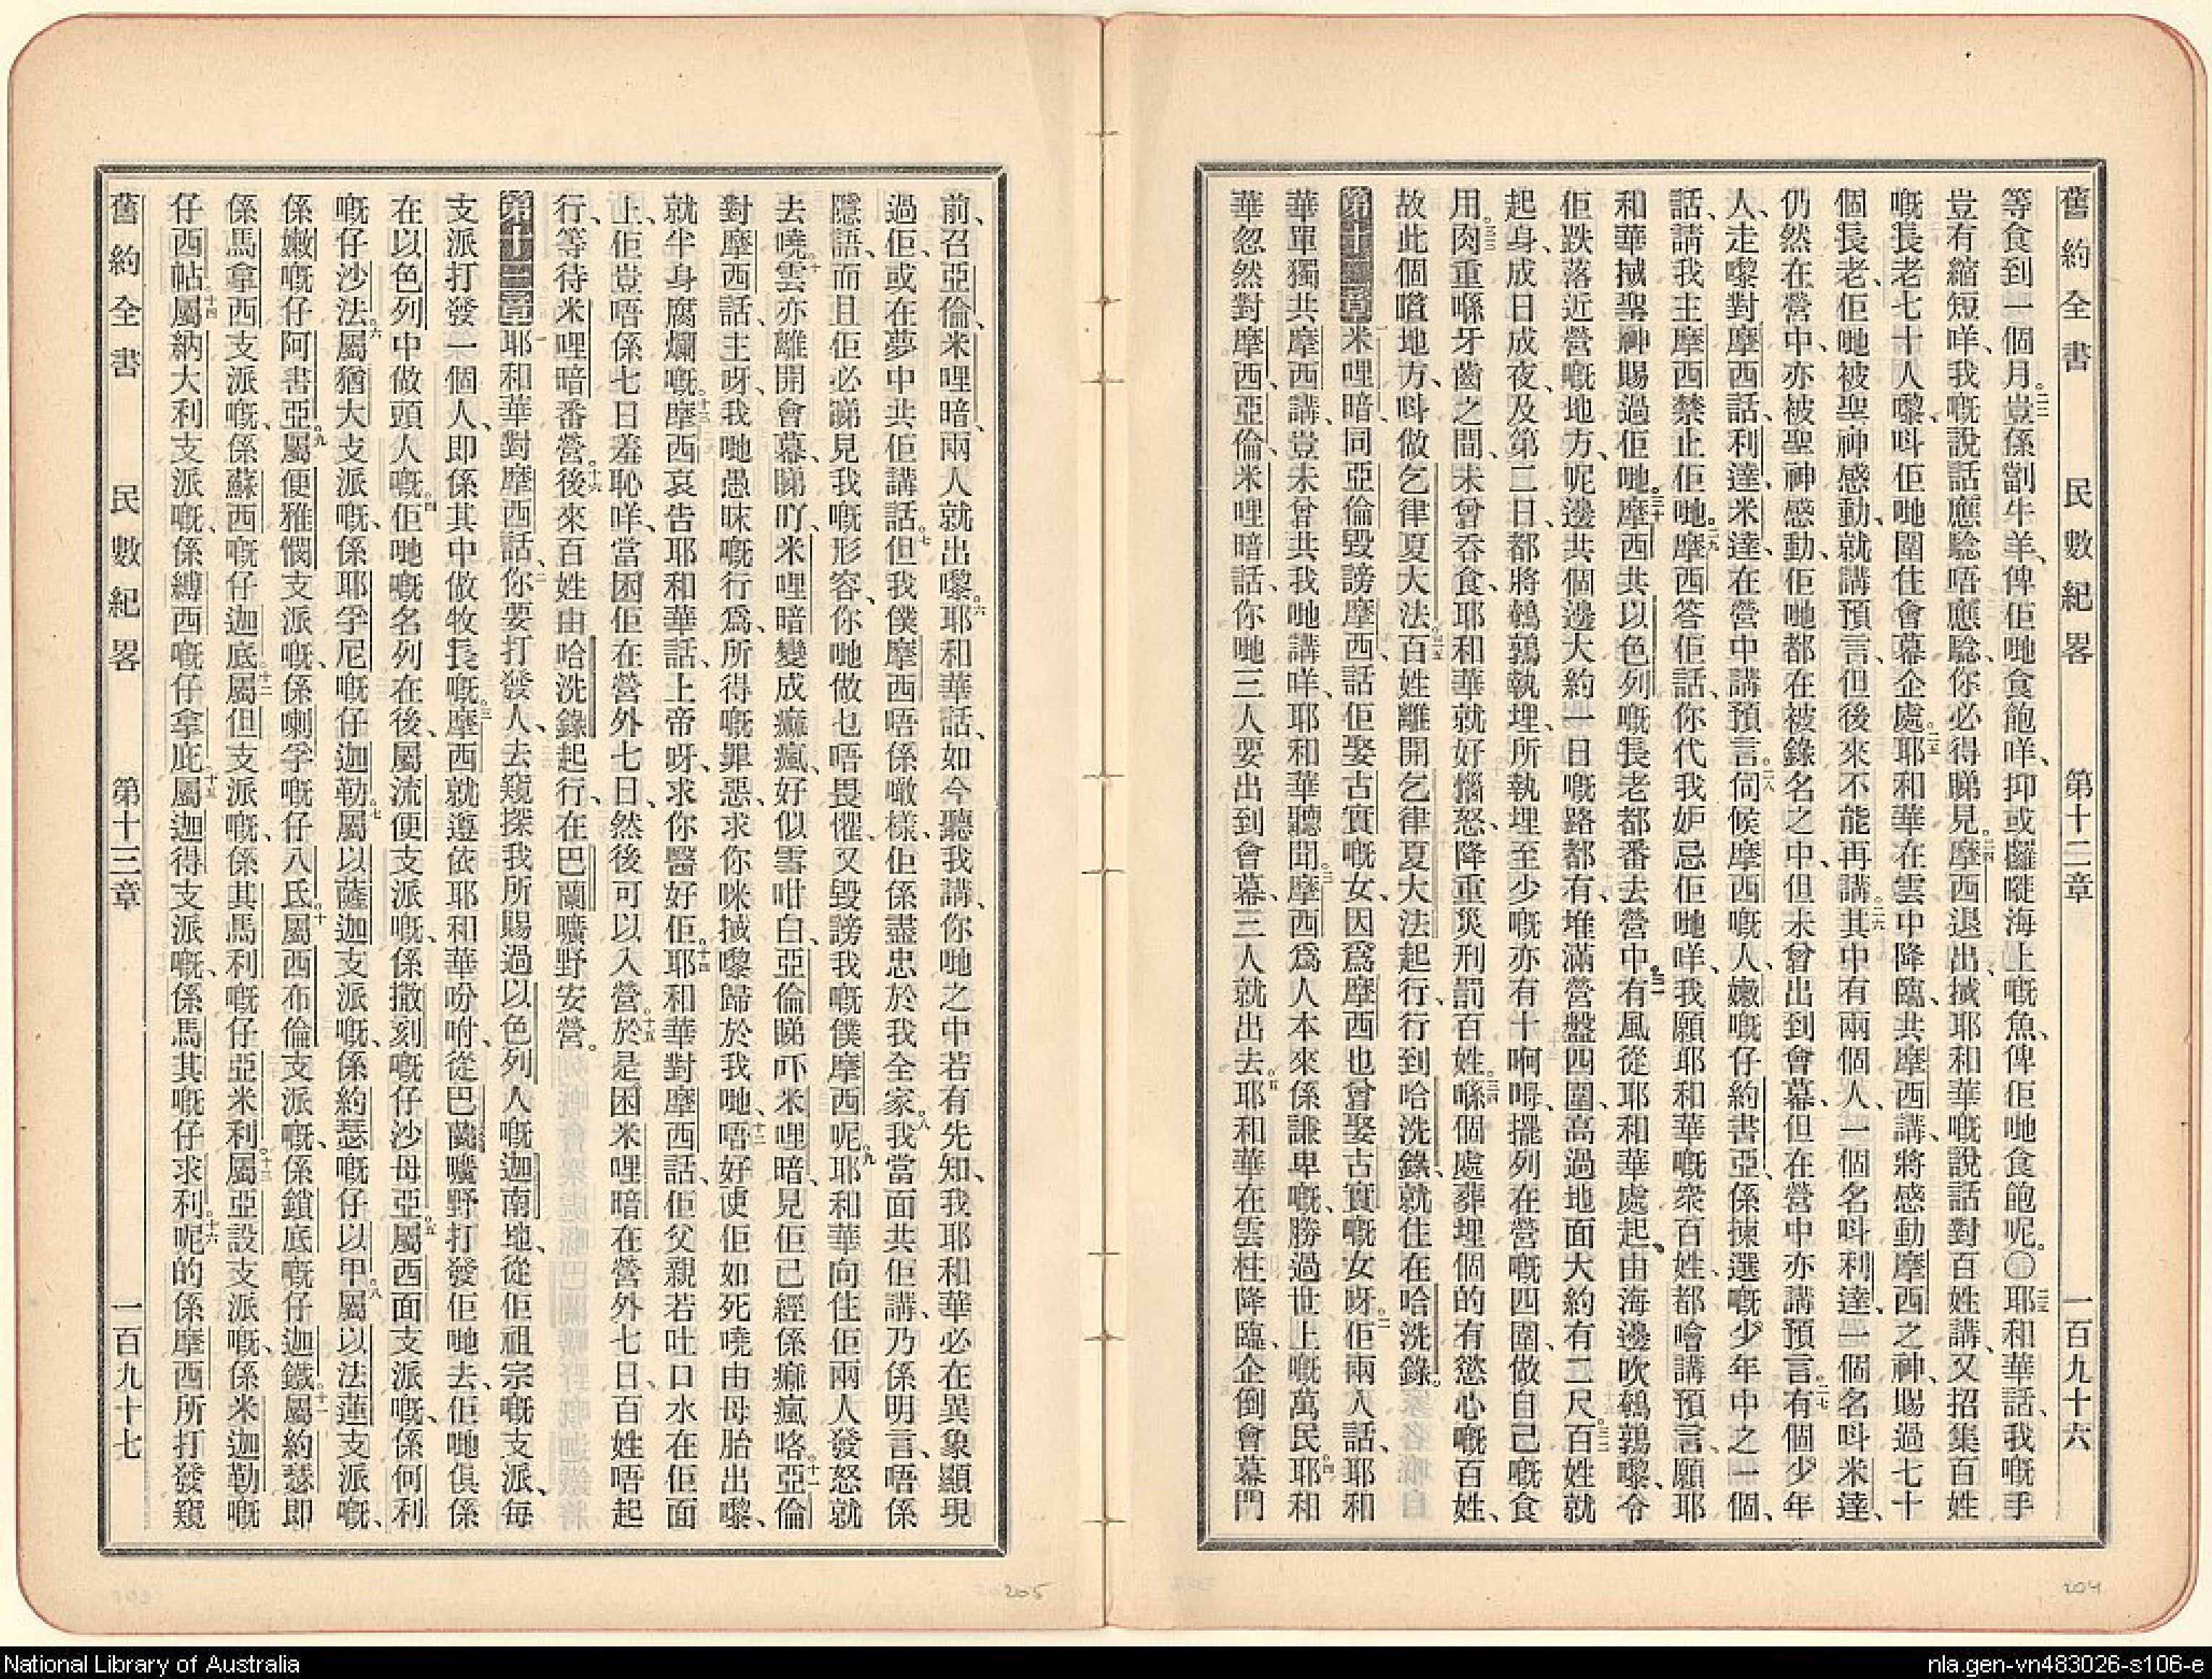 舊約全書 民數紀畧 第十二章 一百九十六
等食到一個月。二二豈係劏牛羊、俾佢哋食飽咩、抑或攞嘥海上嘅魚、俾佢哋食飽呢。〇二三耶和華話、我嘅手
豈有縮短咩、我嘅說話應驗唔應驗、你必得睇見。二四摩西退出、搣耶和華嘅說話對百姓講、又招集百姓
嘅長老七十人嚟、呌佢哋圍住會幕企處。二五耶和華在雲中降臨、共摩西講、將感動摩西之神、賜過七十
個長老、佢哋被聖神感動、就講預言、但後來不能再講。二六其中有兩個人、一個名呌利達、一個名呌米達、
仍然在營中、亦被聖神感動、佢哋都在被錄名之中、但未曾出到會幕、但在營中亦講預言。二七有個少年
人、走嚟對摩西話、利達、米達、在營中講預言。二八伺候摩西嘅人、嫩嘅仔約書亞、係揀選嘅少年中之一個、
話、請我主摩西禁止佢哋。二九摩西答佢話、你代我妒忌佢哋咩、我願耶和華嘅衆百姓、都噲講預言、願耶
和華搣聖神賜過佢哋。三十摩西共以色列嘅長老都番去營中。三一有風從耶和華處起、由海邊吹鵪鶉嚟、令
佢跌落近營嘅地方、呢邊共個邊大約一日嘅路都有、堆滿營盤四圍、高過地面大約有二尺。三二百姓就
起身、成日成夜、及第二日、都將鵪鶉執埋、所執埋至少嘅亦有十啊嗶、擺列在營嘅四圍、做自己嘅食
用。三三肉重喺牙齒之間、未曾吞食、耶和華就好惱怒、降重災刑罰百姓。三四喺個處葬埋個的有慾心嘅百姓、
故此個噠地方、呌做乞律夏大法。三五百姓離開乞律夏大法起行、行到哈洗錄、就住在哈洗錄。
第十二章 一米哩暗、同亞倫毀謗摩西、話佢娶古實嘅女、因爲摩西也曾娶古實嘅女呀。二佢兩人話、耶和
華單獨共摩西講、豈未曾共我哋講咩、耶和華聽聞。三摩西爲人本來係謙卑嘅、勝過世上嘅萬民。四耶和
華忽然對摩西、亞倫、米哩暗話、你哋三人要出到會幕、三人就出去。五耶和華在雲柱降臨、企倒會幕門
前、召亞倫、米哩暗、兩人就出嚟。六耶和華話、如今聽我講、你哋之中若有先知、我耶和華必在異象顯現
過佢、或在夢中共佢講話。七但我僕摩西唔係噉樣、佢係盡忠於我全家。八我當面共佢講、乃係明言、唔係
隱語、而且佢必睇見我嘅形容、你哋做乜唔畏懼、又毀謗我嘅僕摩西呢。九耶和華向住佢兩人發怒就
去嘵。十雲亦離開會幕、睇吖、米哩暗變成痲瘋、好似雪咁白、亞倫睇吓米哩暗、見佢已經係痲瘋咯。十一亞倫
對摩西話、主呀、我哋愚昧嘅行爲、所得嘅罪惡、求你咪搣嚟歸於我哋。十二唔好使佢如死嘵由母胎出嚟、
就半身腐爛嘅。十三摩西哀告耶和華話、上帝呀、求你醫好佢。十四耶和華對摩西話、佢父親若吐口水在佢面
上、佢豈唔係七日羞恥咩、當困佢在營外七日、然後可以入營。十五於是困米哩暗在營外七日、百姓唔起
行、等待米哩暗番營。十六後來百姓由哈洗錄起行、在巴蘭曠野安營。
第十三章 一耶和華對摩西話、二你要打發人、去窺探我所賜過以色列人嘅迦南地、從佢祖宗嘅支派、每
支派打發一個人、即係其中做牧長嘅。三摩西就遵依耶和華吩咐、從巴蘭曠野打發佢哋去、佢哋俱係
在以色列中做頭人嘅。四佢哋嘅名列在後、屬流便支派嘅、係撒刻嘅仔沙母亞。五屬西面支派嘅、係何利
嘅仔沙法。六屬猶大支派嘅、係耶孚尼嘅仔迦勒。七屬以薩迦支派嘅、係約瑟嘅仔以甲。八屬以法蓮支派嘅、
係嫩嘅仔阿書亞。九屬便雅憫支派嘅、係喇孚嘅仔八氐。十屬西布倫支派嘅、係鎖底嘅仔迦鐵。十一屬約瑟即
係馬拿西支派嘅、係蘇西嘅仔迦底。十二屬但支派嘅、係其馬利嘅仔亞米利。十三屬亞設支派嘅、係米迦勒嘅
仔西帖。十四屬納大利支派嘅、係縛西嘅仔拿庇。十五屬迦得支派嘅、係馬其嘅仔求利。十六呢的係摩西所打發窺
舊約全書 民數紀畧 第十三章 一百九十七
204
205
National Library of Australia
nla.gen-vn483026-s106-e